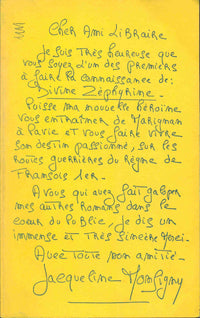 Cher Ami Libraire
Je suis très heureuse que
vous soyez d'un des premiers
à faire la connaissance de:
Divine Zéphyrine.
Puisse ma nouvelle héroïne
vous entraîner de Marignan
à Pavie et vous faire vivre
son destin passionné, sur les
routes guerrières du Règne de
François 1er.
A vous qui avez fait galoper
mes autres Romans dans le
cœur du Public, je dis un
immense et très sincère Merci.
Avec toute mon amitié.
Jacqueline Monsigny